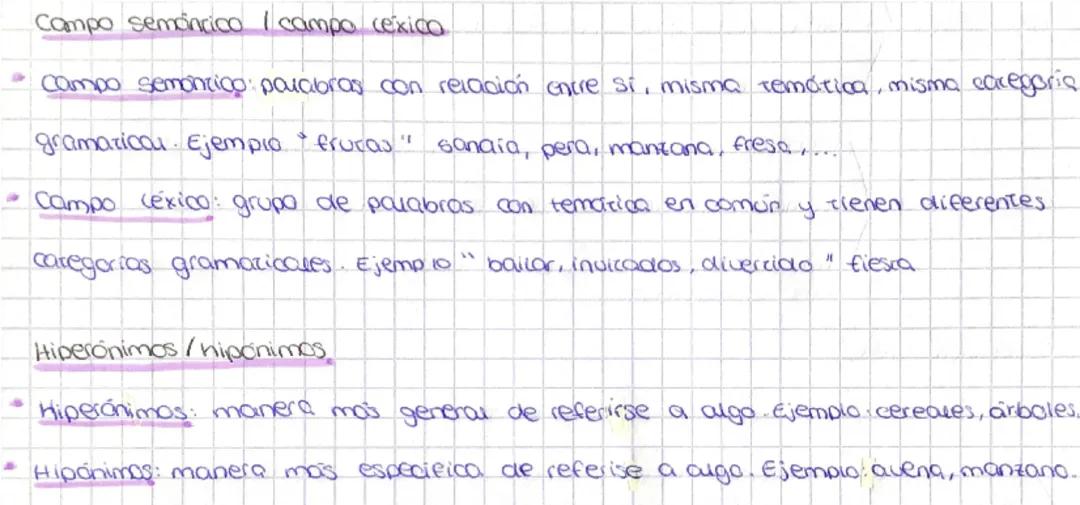 Campo semántico / campo léxico
• Campo semántico: palabras con relación entre sí, misma temática, misma categoría
gramatical. Ejemplo "frutas" sandía, pera, manzana, fresa,...
• Campo léxico: grupo de palabras con temática en común y tienen diferentes
categorías gramaticales. Ejemplo "bailar, invitados, divertido" fiesta
Hiperónimos / hipónimos
• Hiperónimos: manera más general de referirse a algo. Ejemplo: cereales, árboles.
• Hipónimos: manera más específica de referise a algo. Ejemplo: avena, manzano.